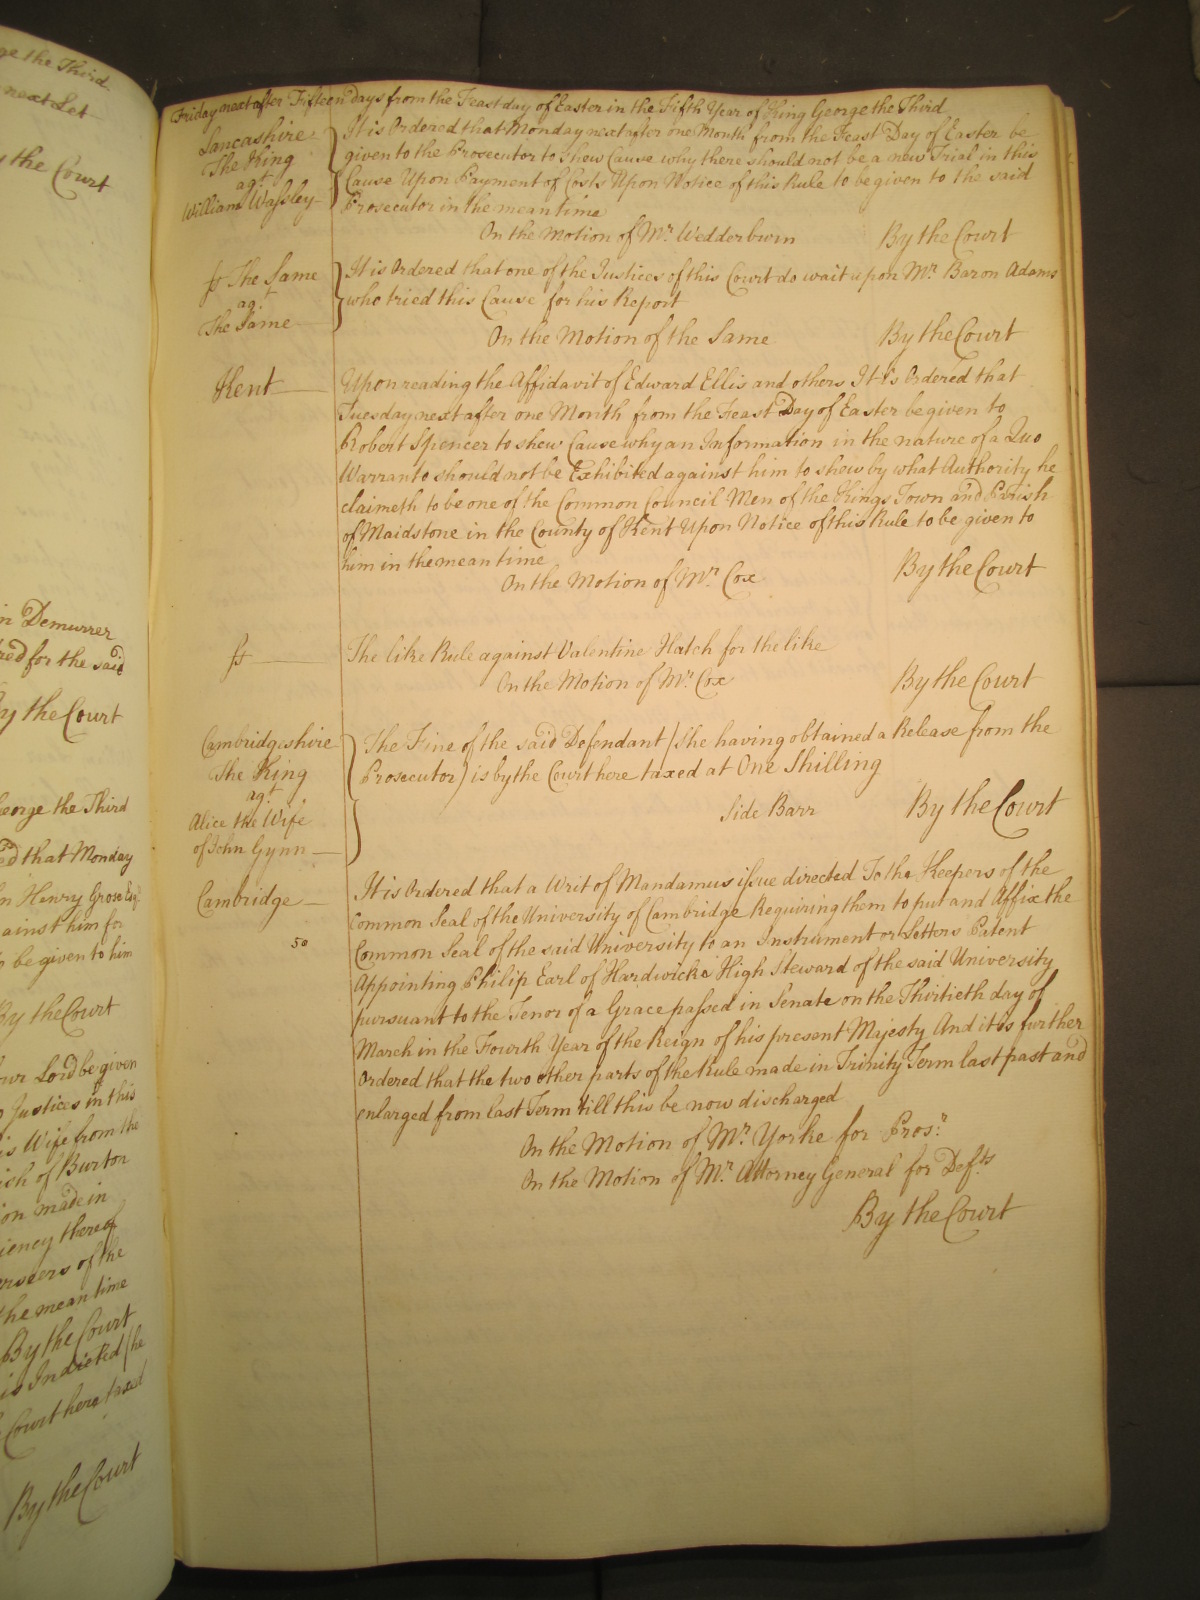 ge the Third
next Let
y the Court
in Demurrer
red for the said
By the Court
George the Third
ed that Monday
n Henry Grose Esqr
against him for
o be given to him
By the Court
our Lord be given
o Justices in this
is Wife from the
ish of Burton
ion made in
iency thereof
erseers of the
the mean time
By the Court
is Indicted (he
Court here taxed
By the Court
Friday next after Fifteen days from the Feast day of Easter in the Fifth Year of King George the Third
Lancashire
The King
agt
William Wassley
It is Ordered that Monday next after one Month from the Feast Day of Easter be
given to the Prosecutor to shew Cause why there should not be a new Trial in this
Cause Upon Payment of Costs Upon Notice of this Rule to be given to the said
Prosecutor in the mean time
On the Motion of Mr. Wedderburn By the Court
ss The Same
agt
The Same
It is Ordered that one of the Justices of this Court do wait upon Mr. Baron Adams
who tried this Cause for his Report
On the Motion of the Same By the Court
Kent
Upon reading the Affidavit of Edward Ellis and others It is Ordered that
Tuesday next after one Month from the Feast Day of Easter be given to
Robert Spencer to shew Cause why an Information in the nature of a Quo
Warranto should not be Exhibited against him to shew by what Authority he
claimeth to be one of the Common Council Men of the Kings Town and Parish
of Maidstone in the County of Kent Upon Notice of this Rule to be given to
him in the mean time
On the Motion of Mr. Cox By the Court
ss
The like Rule against Valentine Hatch for the like
On the Motion of Mr. Cox By the Court
Cambridgeshire
The King
agt
Alice the Wife
of John Gynn
The Fine of the said Defendant (She having obtained a Release from the
Prosecutor) is by the Court here taxed at One Shilling
Side Barr By the Court
Cambridge
50
It is Ordered that a Writ of Mandamus issue directed To the Keepers of the
Common Seal of the University of Cambridge Requiring them to put and Affix the
Common Seal of the said University to an Instrument or Letters Patent
Appointing Philip Earl of Hardwicke High Steward of the said University
pursuant to the Tenor of a Grace passed in Senate on the Thirtieth day of
March in the Fourth Year of the Reign of his present Majesty And it is further
Ordered that the two other parts of the Rule made in Trinity Term last past and
enlarged from last Term till this be now discharged
On the Motion of Mr. Yorke for Pros.r
On the Motion of Mr. Attorney General for Defts
By the Court